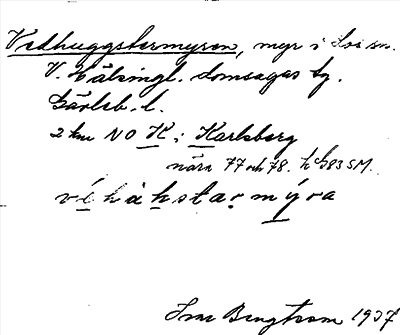 Vedhuggstarmyren, myr i Los sn.
V. Hälsingl. domsagas tg.
Gävleb. l.
2 km NO K i Karlsberg
nära 77 och 78. h 83 SM.
víhàkstarmýra
Bengtsson 1937